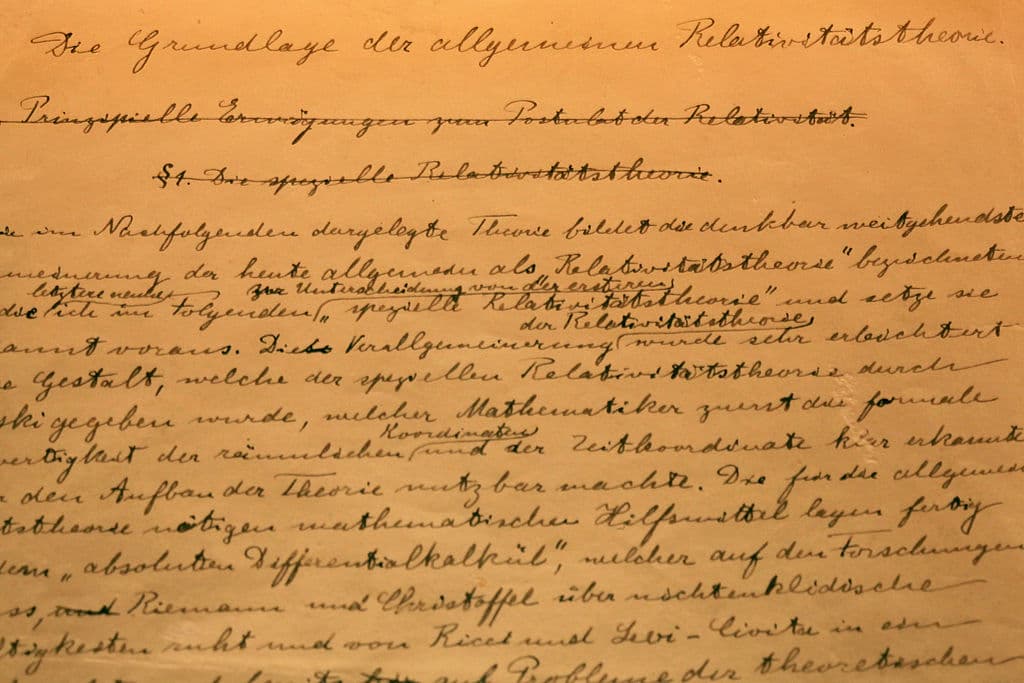 Die Grundlage der allgemeinen Relativitätstheorie.
Prinzipielle Erwägungen zum Postulat der Relativität.
§1. Die spezielle Relativitätstheorie.
ie im Nachfolgenden dargelegte Theorie bildet die denkbar weitgehendste
meinerung der heute allgemein als „Relativitätstheorie" bezeichneten
letztere nenne zur Unterscheidung von der ersteren
die ich im Folgenden „spezielle Relativitätstheorie" und setze sie
der Relativitätstheorie
annt voraus. Die Verallgemeinerung wurde sehr erleichtert
e Gestalt, welche der speziellen Relativitätstheorie durch
ski gegeben wurde, welcher Mathematiker zuerst die formale
Koordinaten
wertigkeit der räumlichen und der Zeitkoordinate klar erkannte
r den Aufbau der Theorie nutzbar machte. Die für die allgemein
tstheorie nötigen mathematischen Hilfsmittel lagen fertig
dem „absoluten Differentialkalkül", welcher auf den Forschungen
ss, und Riemann und Christoffel über nichteuklidische
ltigkeiten ruht und von Ricci und Levi-Civita in ein
auf Probleme der theoretischen